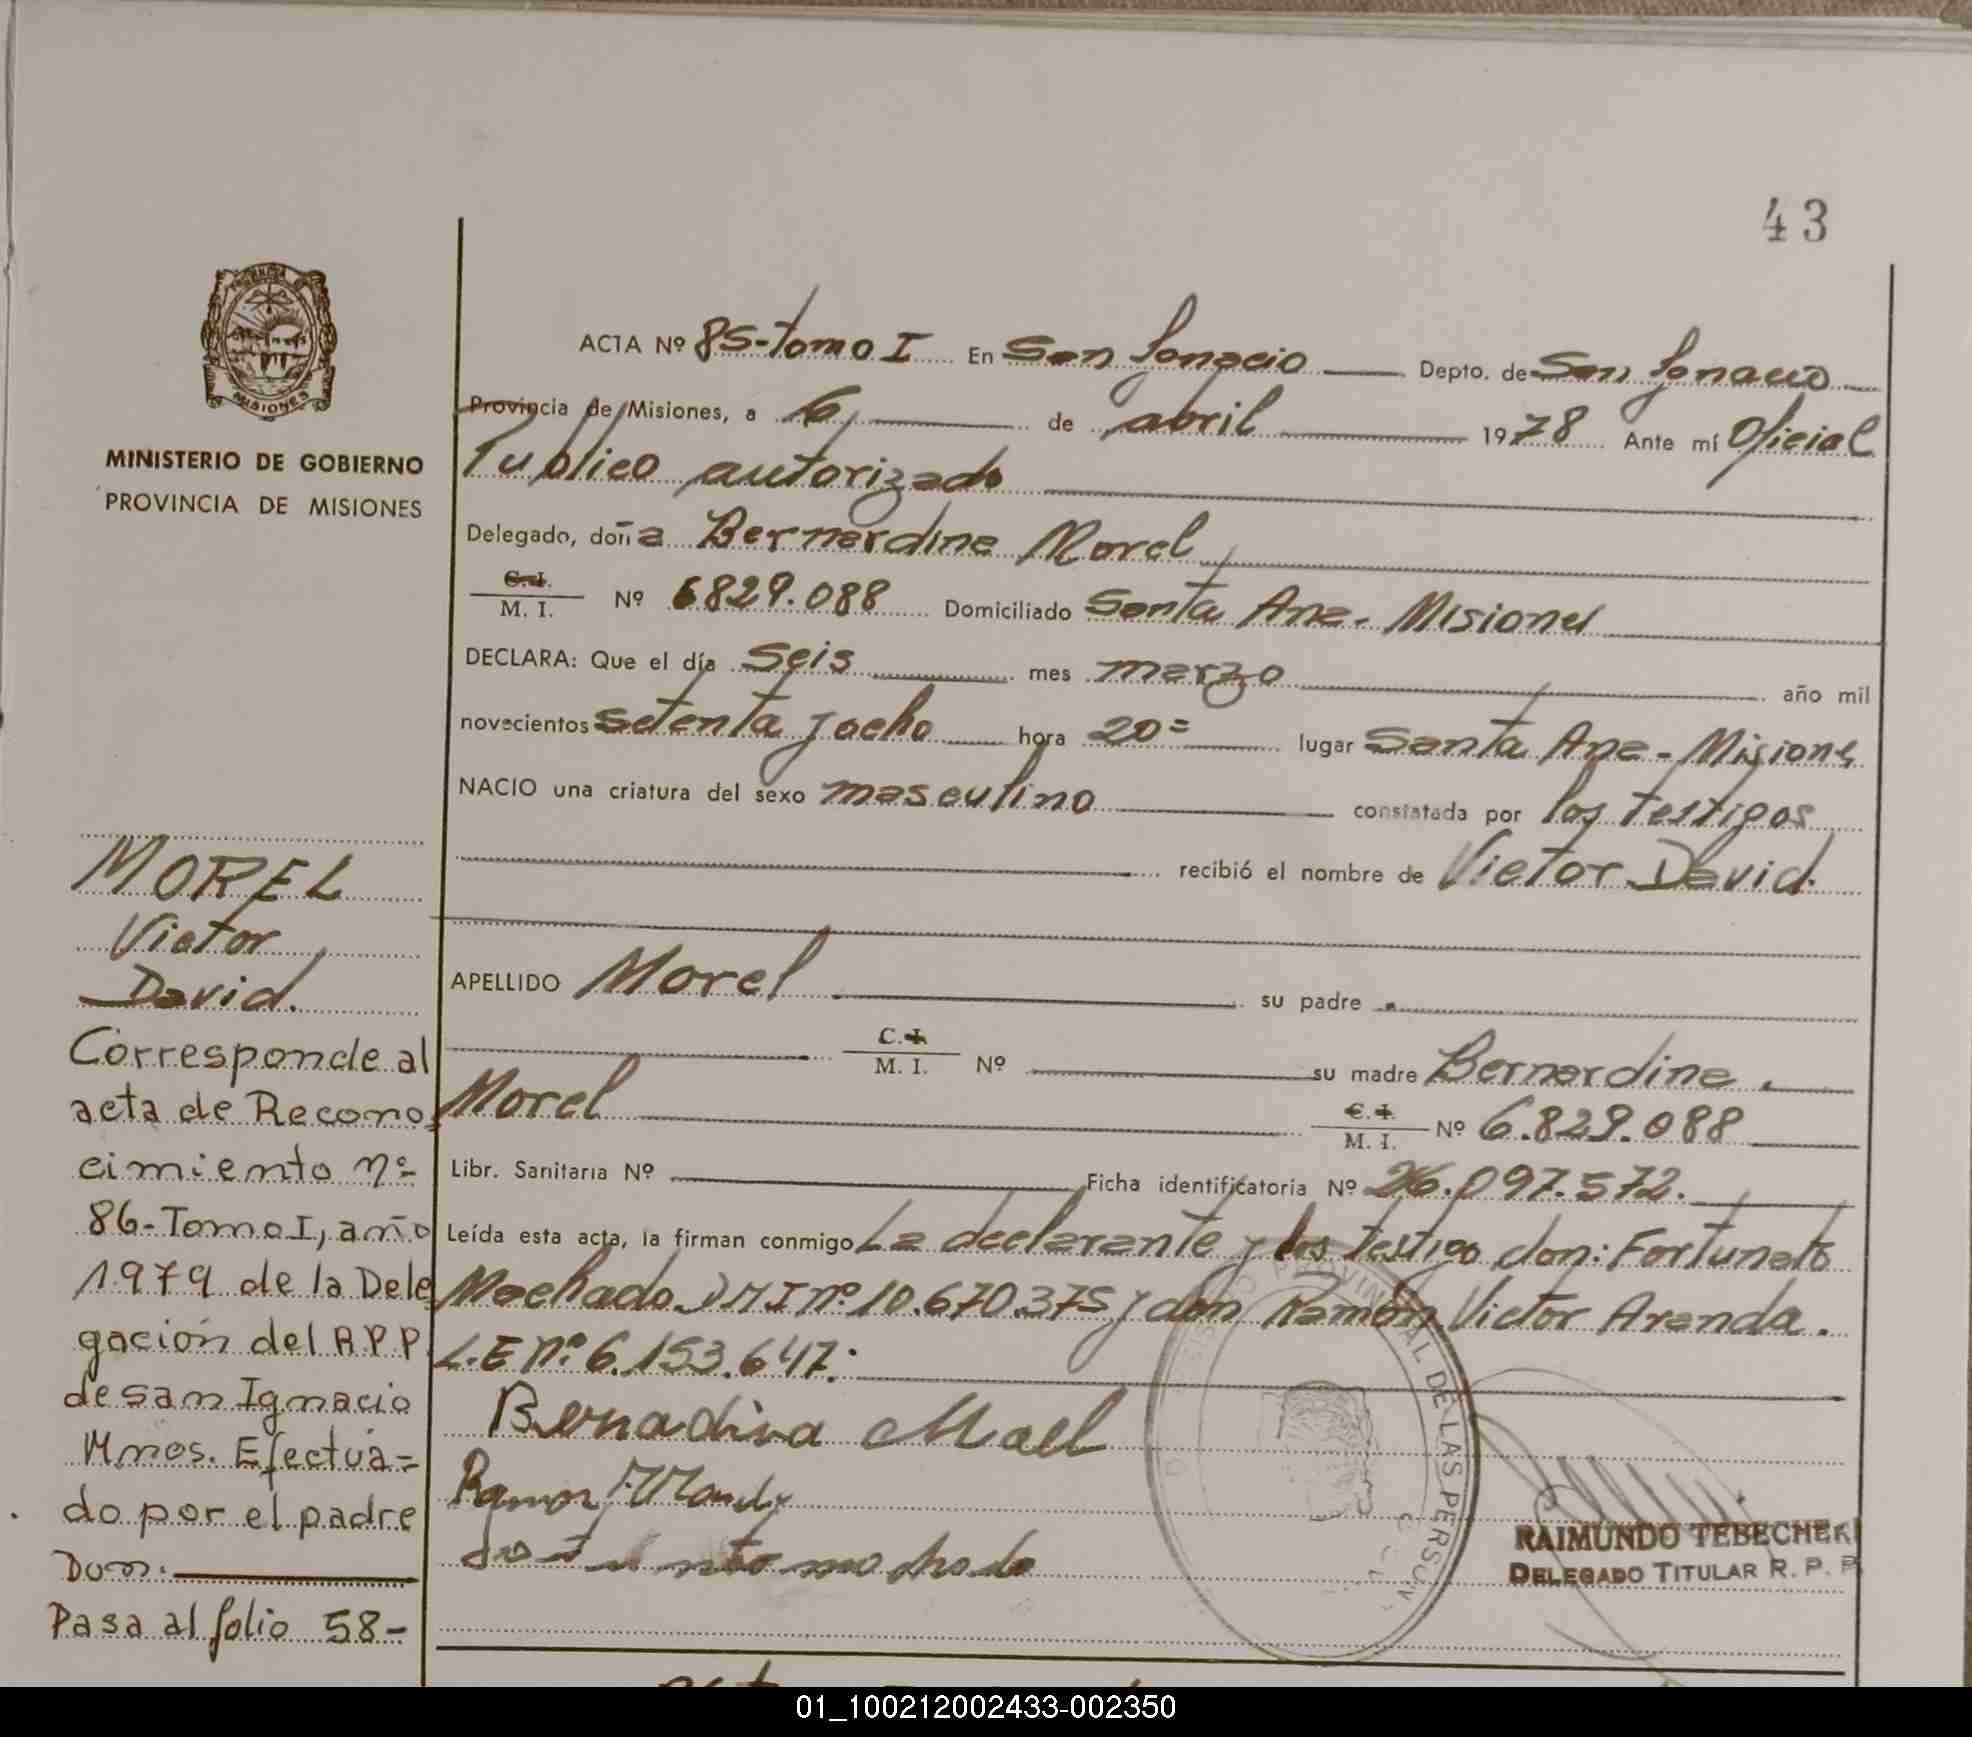 43
MISIONES
MINISTERIO DE GOBIERNO
PROVINCIA DE MISIONES
ACTA Nº 85-tomo I En San Ignacio Depto. de San Ignacio
Provincia de Misiones, a 6 de abril 1978 Ante mí Oficial
Publico autorizado
Delegado, doña Bernardina Morel
C.I.
M. I. Nº 6829.088 Domiciliado Santa Ana - Misiones
DECLARA: Que el día Seis mes marzo año mil
novecientos setenta y ocho hora 20= lugar Santa Ana - Misiones
NACIO una criatura del sexo masculino constatada por los testigos
recibió el nombre de Victor David.
APELLIDO Morel su padre
C.I.
M. I. Nº su madre Bernardina
Morel C.I.
M. I. Nº 6.829.088
Libr. Sanitaria Nº Ficha identificatoria Nº 26.097.572.
Leída esta acta, la firman conmigo La declarante y los testigos don: Fortunato
Machado DNI nº 10.670.375 y don Ramón Victor Aranda.
L.E nº 6.153.647:
Bernadina
Ramon
machado
PROVINCIAL DE LAS PERSON
RAIMUNDO TEBECHERI
DELEGADO TITULAR R. P. P.
MOREL
Victor
David.
Corresponde al
acta de Recono
cimiento nº
86-Tomo I, año
1979 de la Dele
gación del R P P
de san Ignacio
Mnes. Efectua=
do por el padre
Don:
Pasa al folio 58-
01_100212002433-002350